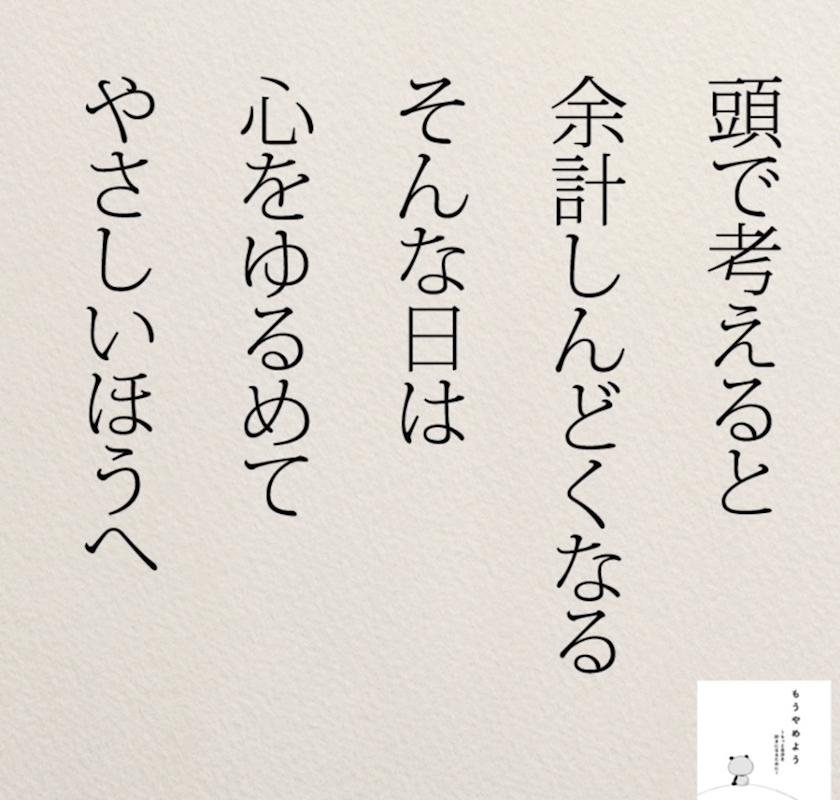 頭で考えると
余計しんどくなる
そんな日は
心をゆるめて
やさしいほうへ
もうやめよう